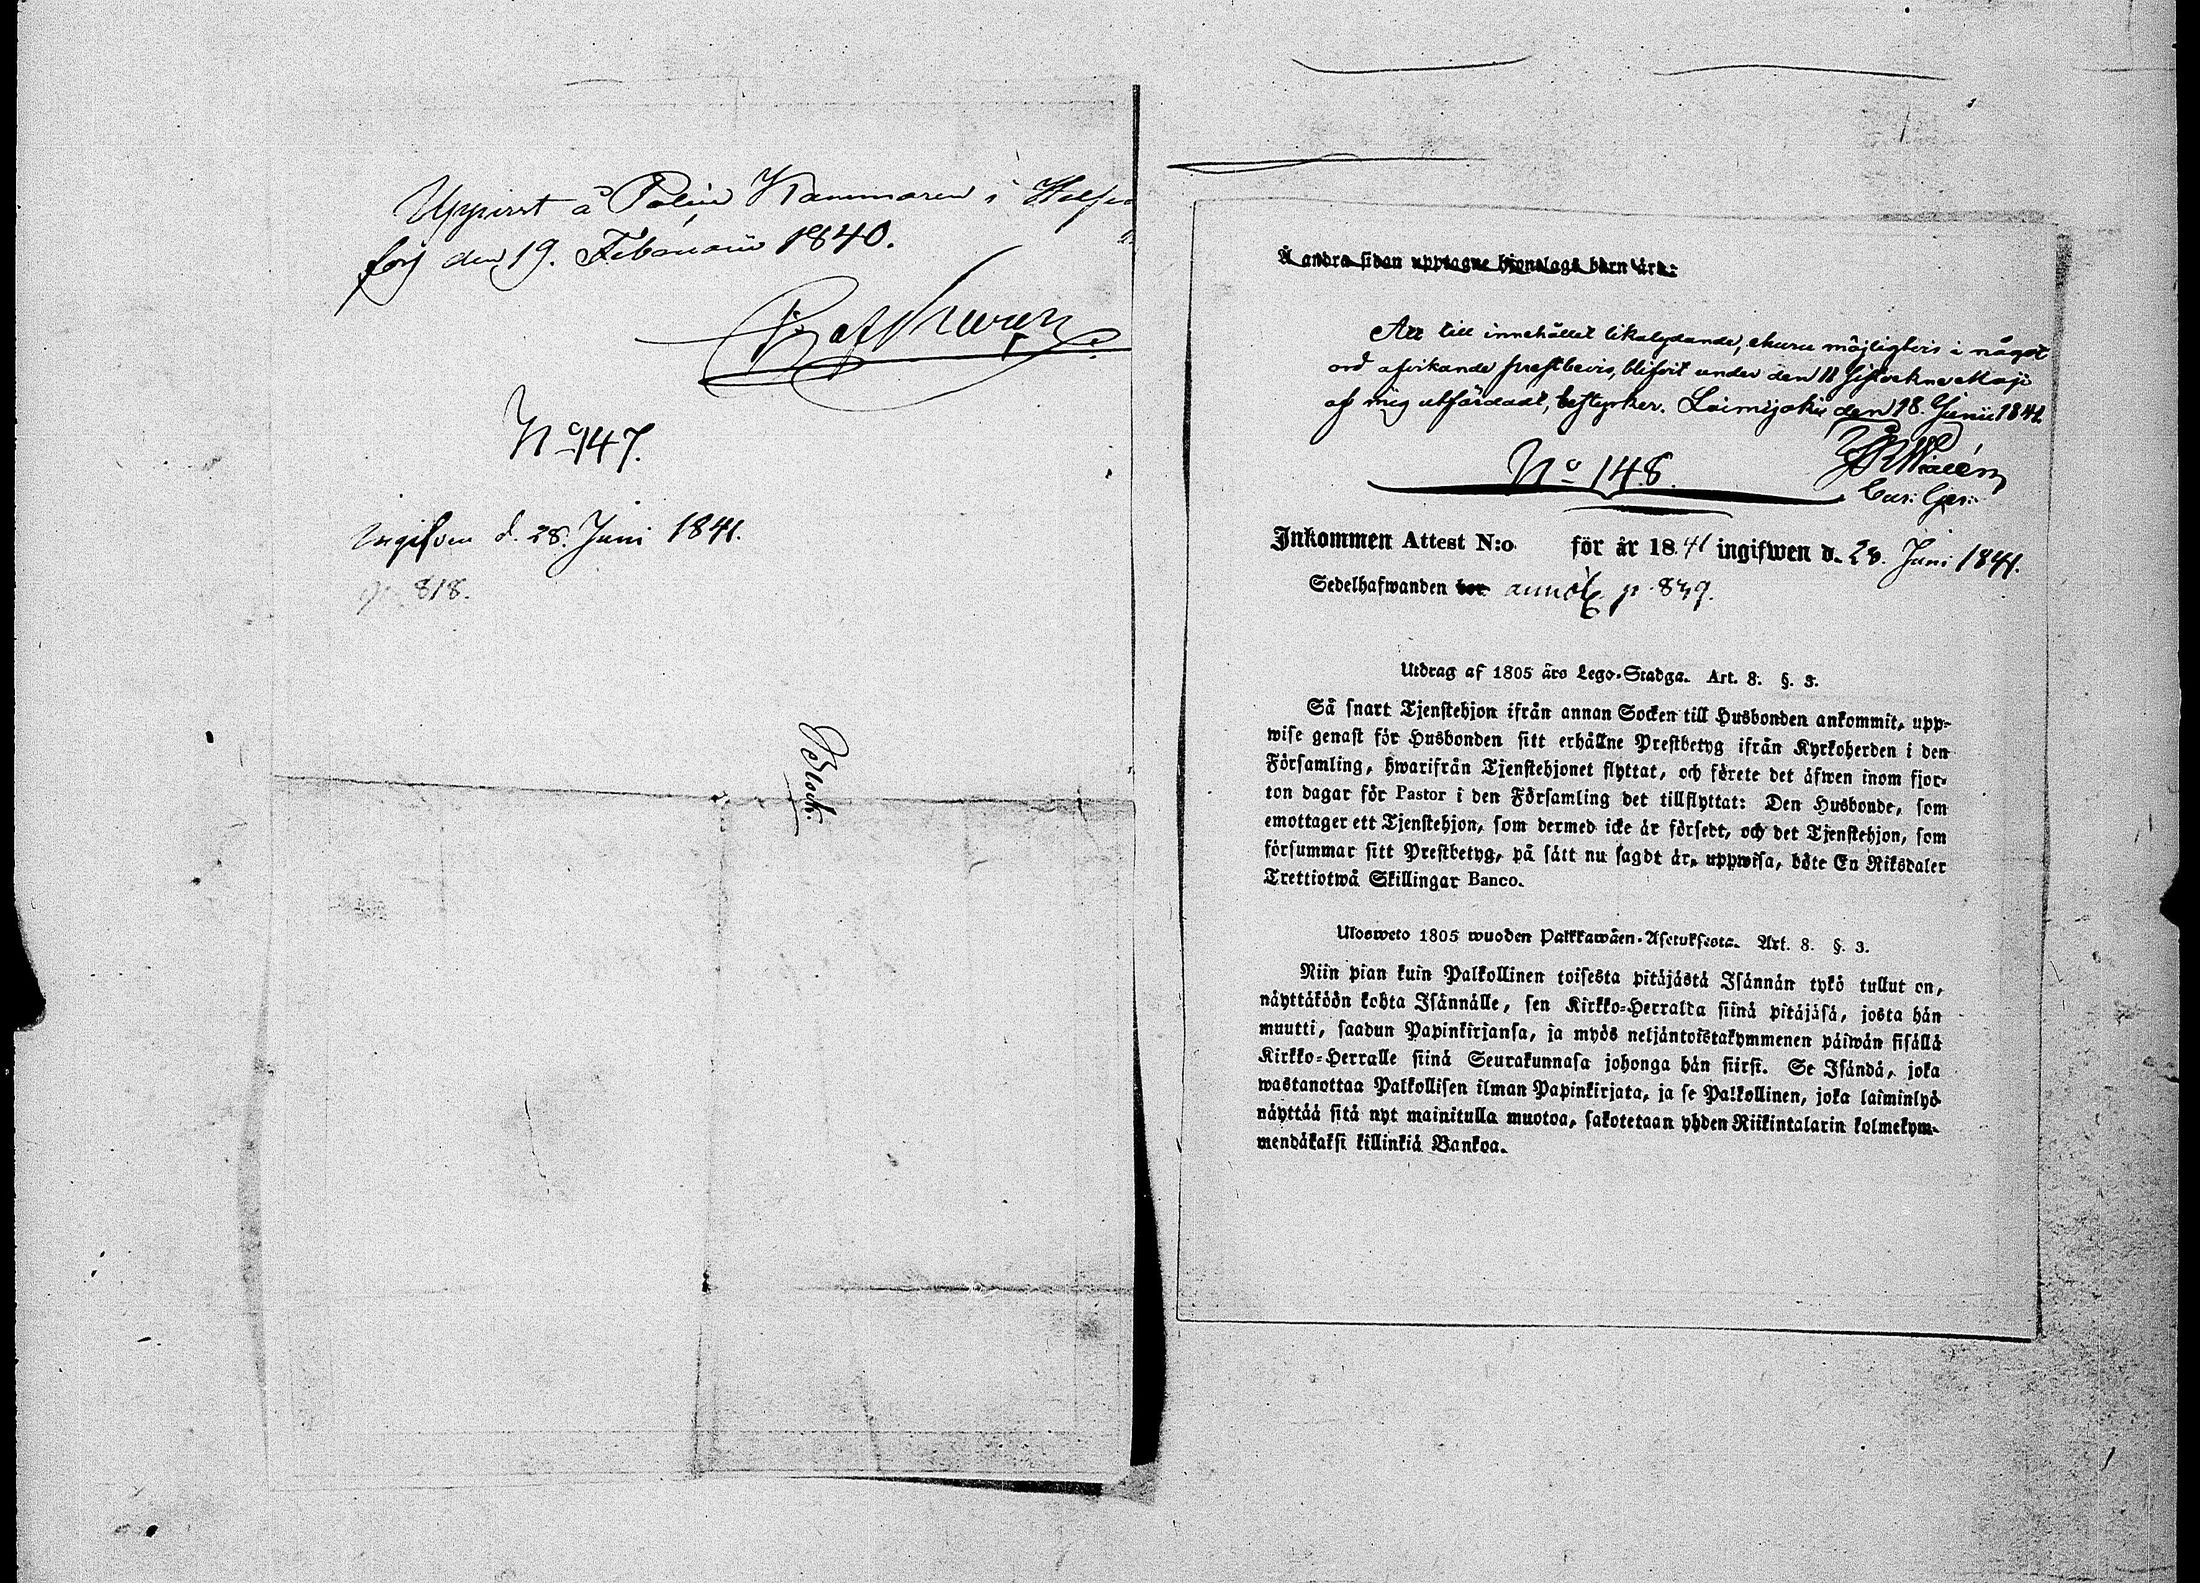 Uppvist å Polis Kammaren i Helsing
fors den 19. Februarii 1840.
No 147.
Ingifven d. 28. Juni 1841.
p. 818.
Block.
Å andra sidan upptagne hjonelags barn äro:
Att till innehållet likalydande, ehuru möjligtvis i något
ord afvikande prestbevis, blifvit under den 11 sistvekne Maji
af mig utfärdadt, bestyrker. Loimijoki den 18. Junii 1841.
No 148.
Inkommen Attest N:o för år 1841 ingifwen d. 28. Juni 1841.
Sedelhafwanden bor p. 839.
Utdrag af 1805 års Lego-Stadga. Art. 8. §. 3.
Så snart Tjenstehjon ifrån annan Socken till Husbonden ankommit, upp-
wise genast för Husbonden sitt erhållne Prestbetyg ifrån Kyrkoherden i den
Församling, hwarifrån Tjenstehjonet flyttat, och förete det äfwen inom fjor-
ton dagar för Pastor i den Församling det tillflyttat: Den Husbonde, som
emottager ett Tjenstehjon, som dermed icke är försedt, och det Tjenstehjon, som
försummar sitt Prestbetyg, på sätt nu sagdt är, uppwisa, böte En Riksdaler
Trettiotwå Skillingar Banco.
Ulosweto 1805 wuoden Palkkawäen-Asetuksesta. Art. 8. §. 3.
Niin pian kuin Palkollinen toisesta pitäjästä Isännän tykö tullut on,
näyttäköön kohta Isännälle, sen Kirkko-Herralta siinä pitäjäsä, josta hän
muutti, saadun Papinkirjansa, ja myös neljäntoistakymmenen päiwän sisällä
Kirkko-Herralle siinä Seurakunnasa johonga hän siirsi. Se Isändä, joka
wastanottaa Palkollisen ilman Papinkirjata, ja se Palkollinen, joka laiminlyö
näyttää sitä nyt mainitulla muotoa, sakotetaan yhden Riikintalarin kolmekym-
mendäkaksi killinkiä Bankoa.